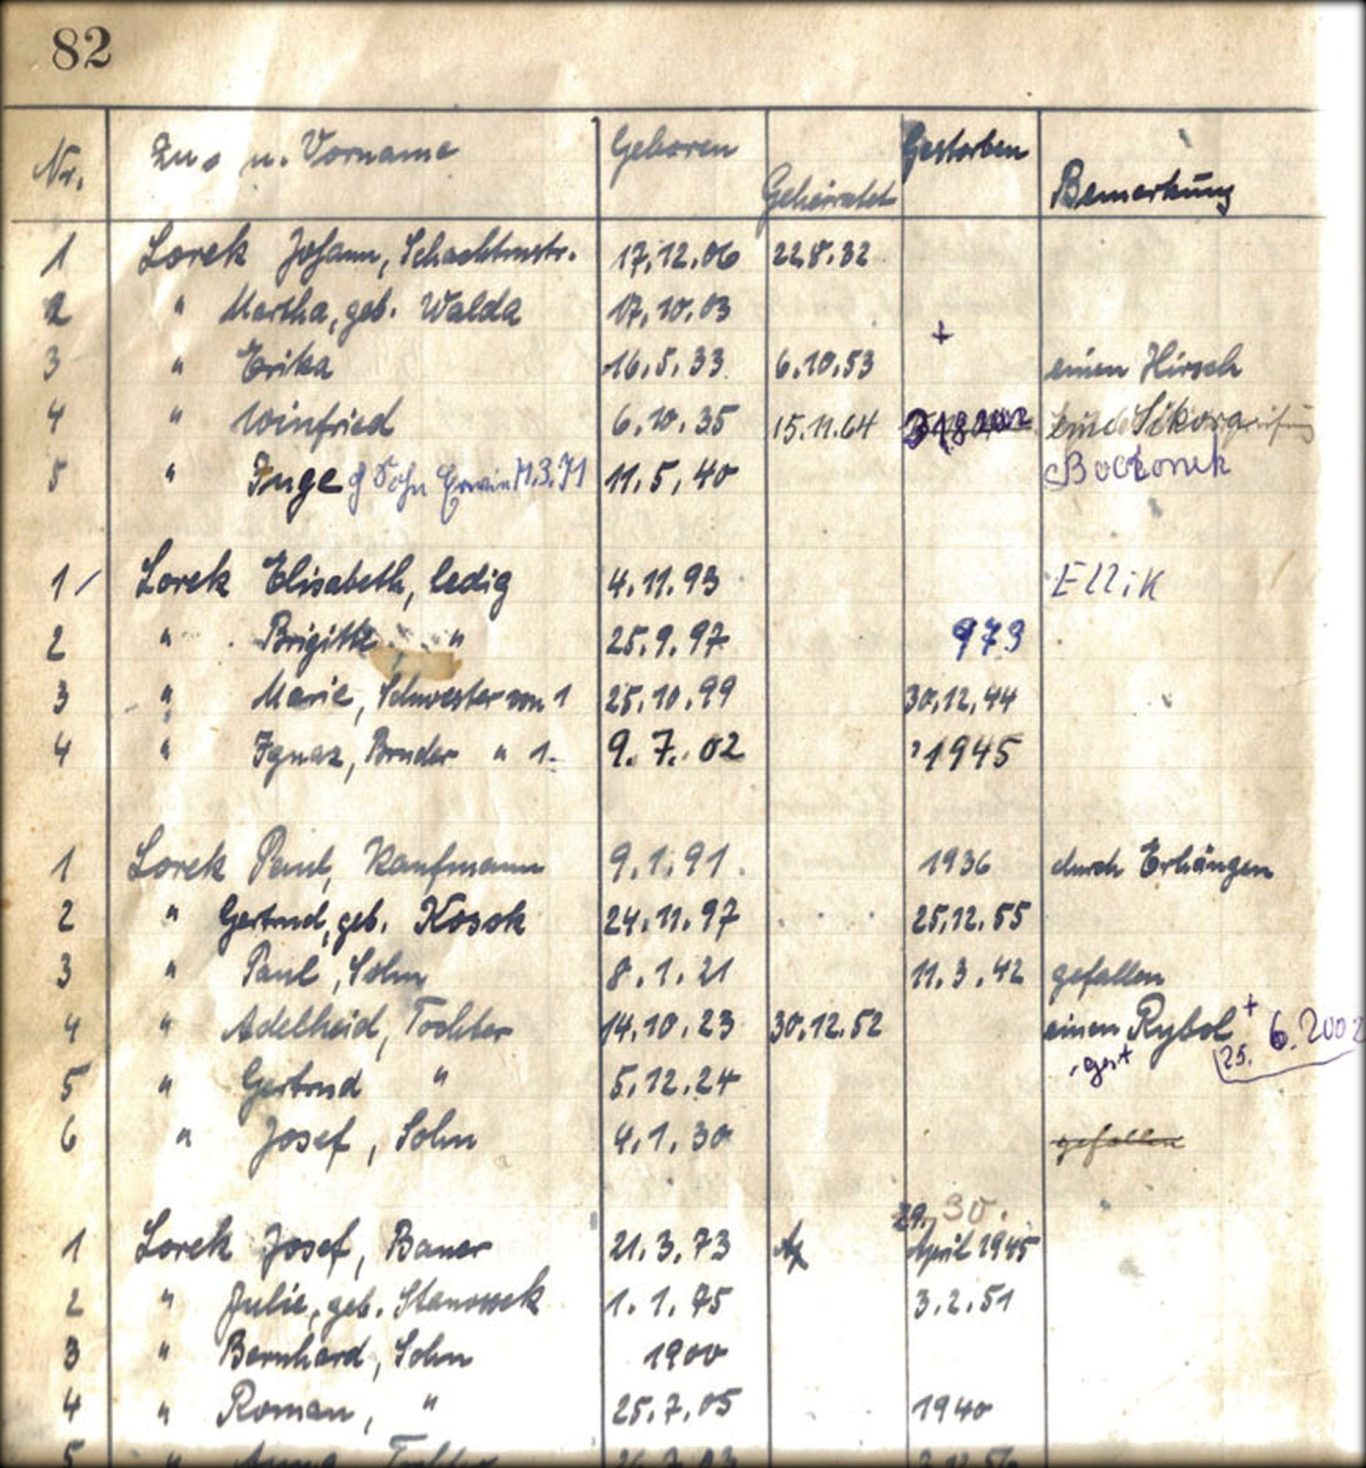 82
Nr. Zu- u. Vorname Geboren Geheiratet Gestorben Bemerkung
1 Lorek Johann, Schachtmstr. 17.12.06 22.8.32
2 " Martha, geb. Walda 17.10.03
3 " Erika 16.5.33 6.10.53 + einen Hirsch
4 " Winfried 6.10.35 15.11.64 eine Sikora
5 " Inge Sohn Erwin 11.3.71 11.5.40 Boczonek
1 Lorek Elisabeth, ledig 4.11.93 Ellik
2 " Brigitte " 25.9.97 973
3 " Marie, Schwester von 1 25.10.99 30.12.44
4 " Ignaz, Bruder " 1 9.7.02 1945
1 Lorek Paul, Kaufmann 9.1.91 1936 durch Erhängen
2 " Gertrud, geb. Kosok 24.11.97 25.12.55
3 " Paul, Sohn 8.1.21 11.3.42 gefallen
4 " Adelheid, Tochter 14.10.23 30.12.52 einen Rybol + 25. 6.2002
gest
5 " Gertrud " 5.12.24
6 " Josef, Sohn 4.1.30 gefallen
29. 30.
1 Lorek Josef, Bauer 21.3.73 April 1945
2 " Julie, geb. Stanossek 1.1.75 3.2.51
3 " Bernhard, Sohn 1900
4 " Roman, " 25.7.05 1940
5 " Tochter